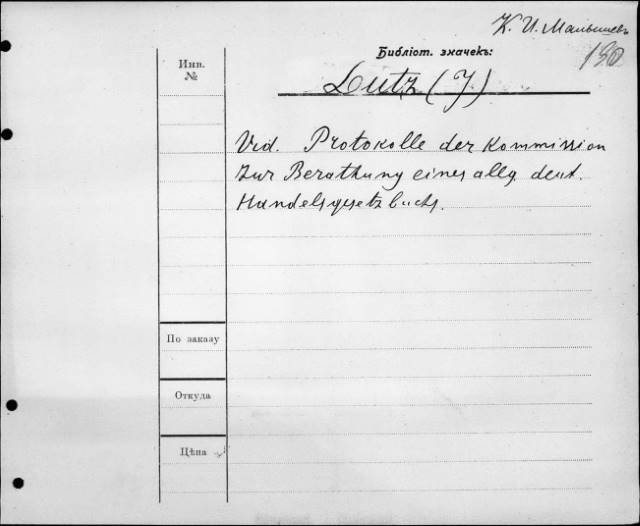 К. И. Малышевъ
Библіот. значекъ:
190
Инв.
№
Lutz (J)
Vid. Protokolle der Kommission
zur Berathung eines allg. deut.
Handelsgesetzbuchs.
По заказу
Откуда
Цѣна